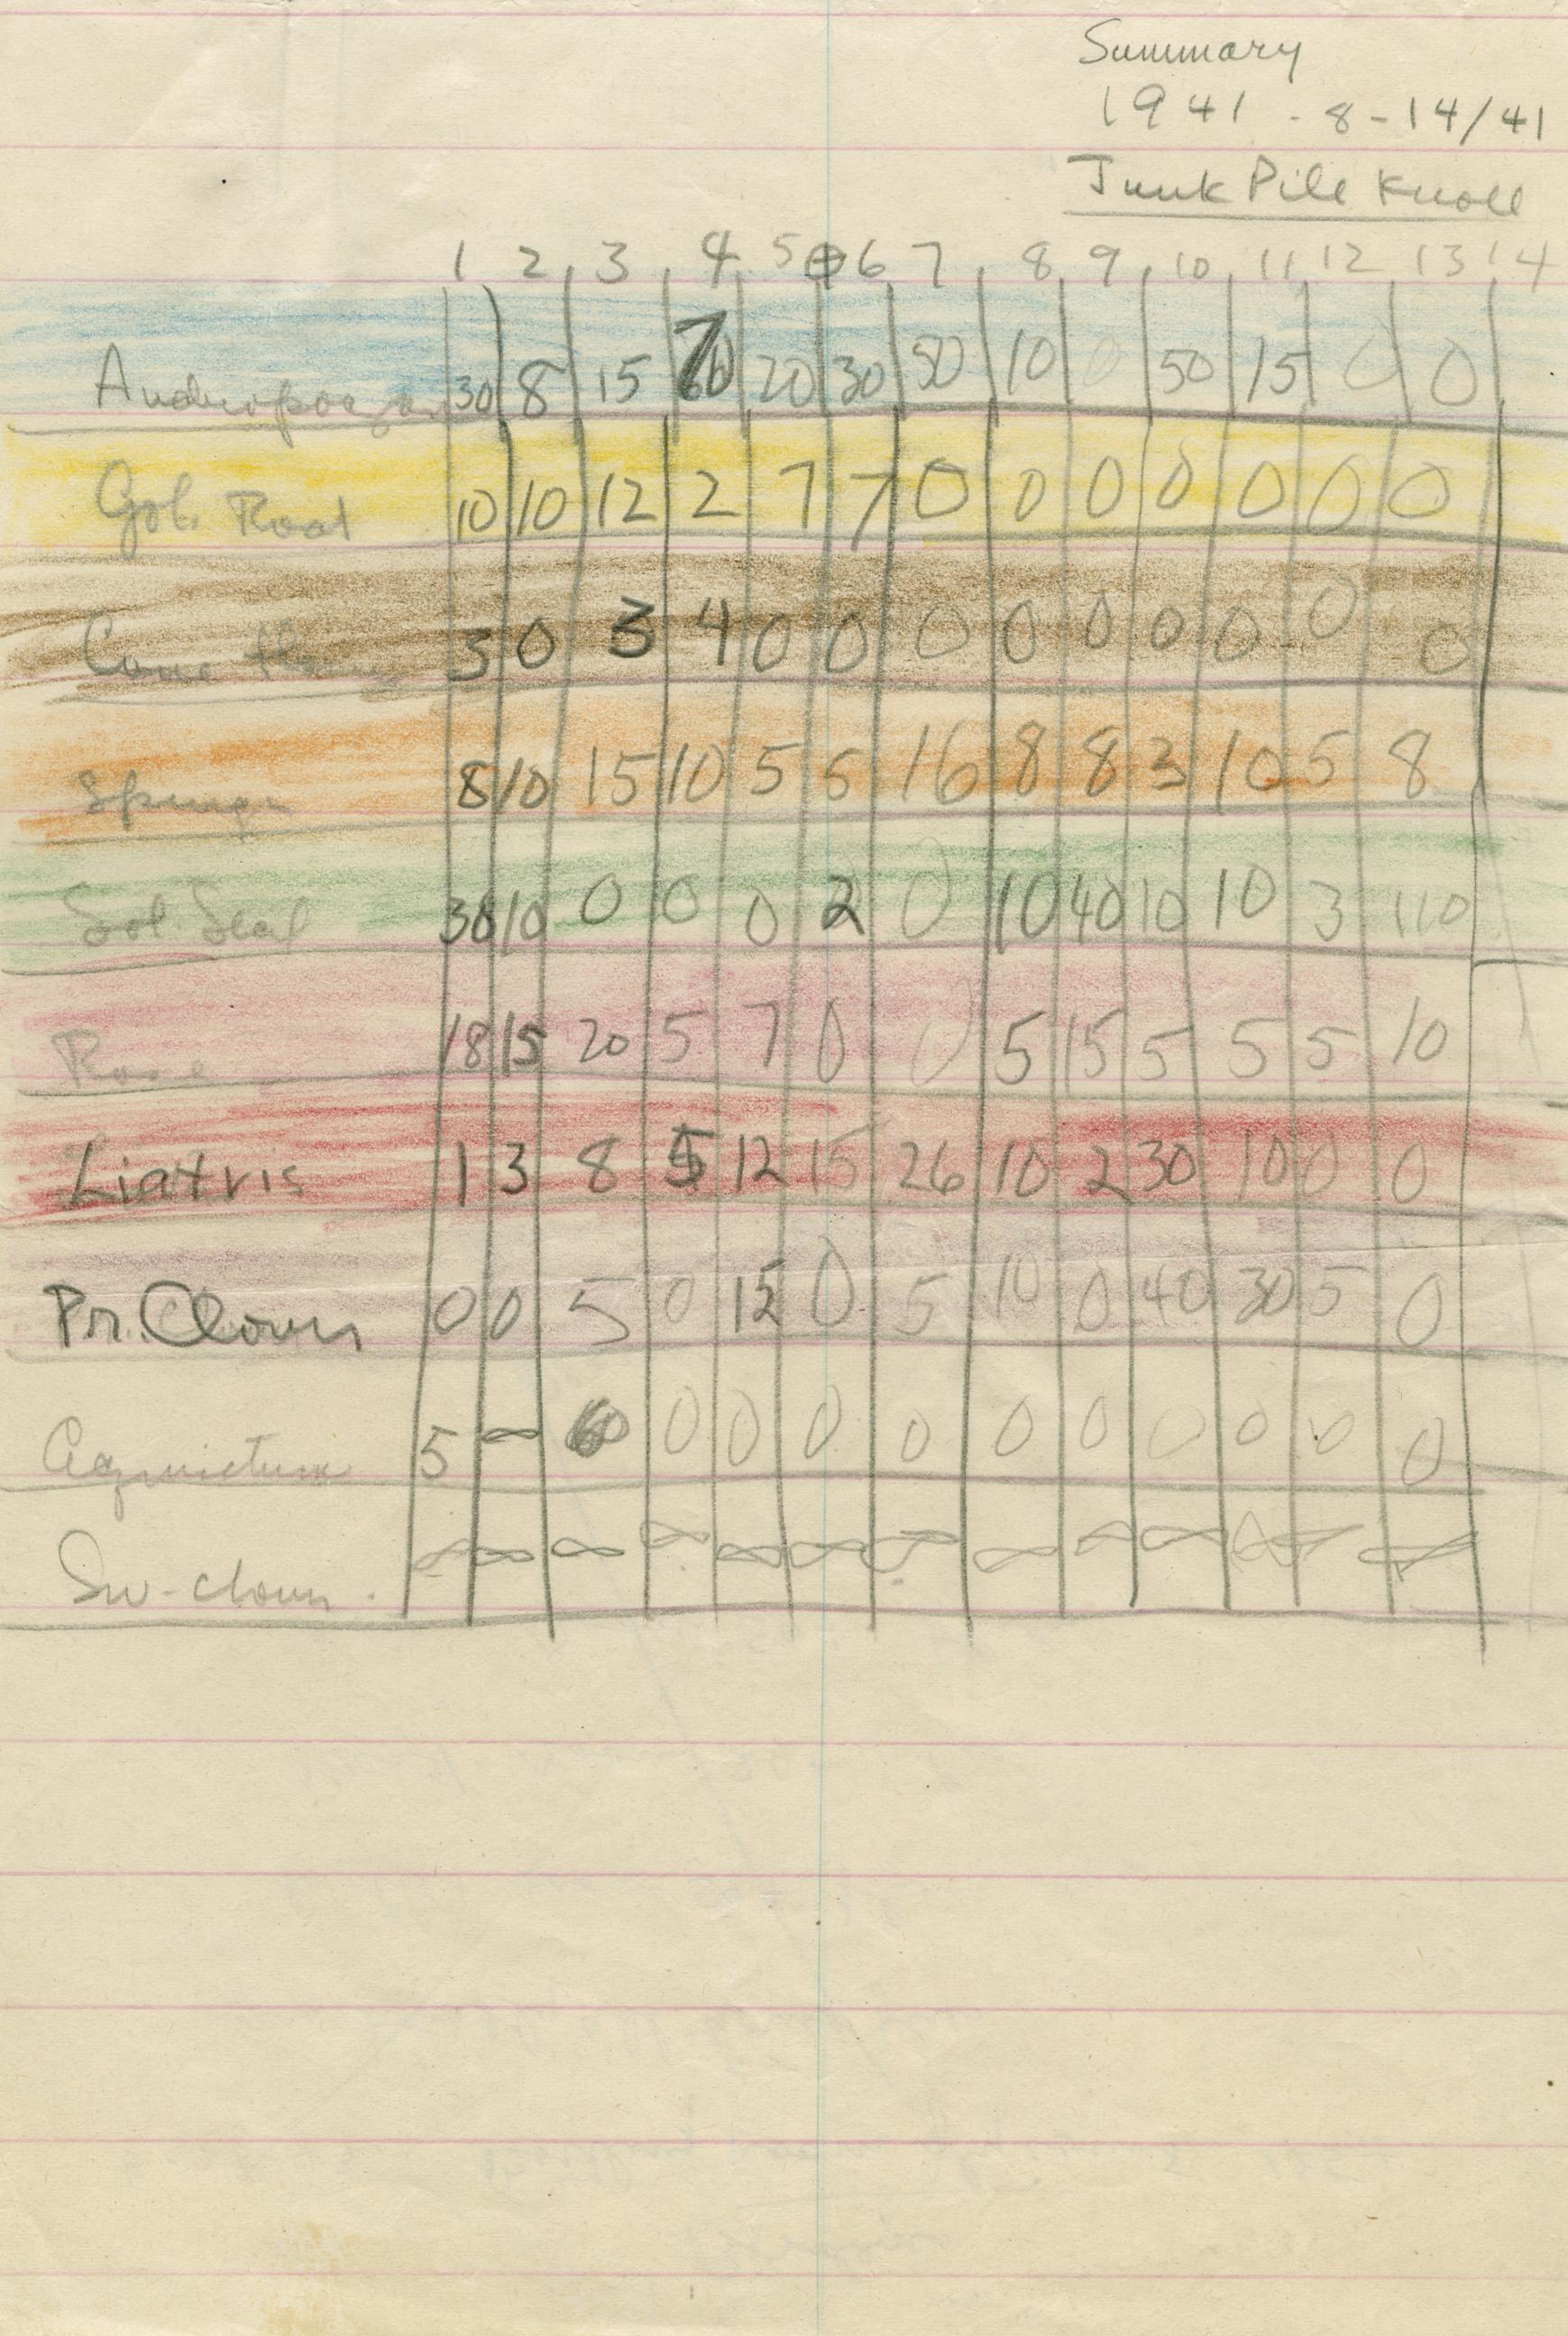 Summary
1941 - 8-14/41
Junk Pile Knoll
1 2 3 4 5 6 7 8 9 10 11 12 13 14
Andropogon 30 8 15 70 20 30 80 10 0 50 15 0 0
Gol. Rod 10 10 12 2 7 7 0 0 0 0 0 0 0
Cone 3 0 3 4 0 0 0 0 0 0 0 0 0
Spurge 8 10 15 10 5 5 16 8 8 3 10 5 8
Sol. Seal 30 10 0 0 0 2 0 10 40 10 10 3 110
Rose 18 15 20 5 7 0 0 5 15 5 5 5 10
Liatris 1 3 8 5 12 15 26 10 2 30 10 0 0
Pr. Clover 0 0 5 0 15 0 5 10 0 40 30 5 0
5 ∞ 60 0 0 0 0 0 0 0 0 0 0
Sw-clover. ∞ ∞ ∞ ∞ ∞ ∞ ∞ ∞ ∞ ∞ ∞ ∞ ∞